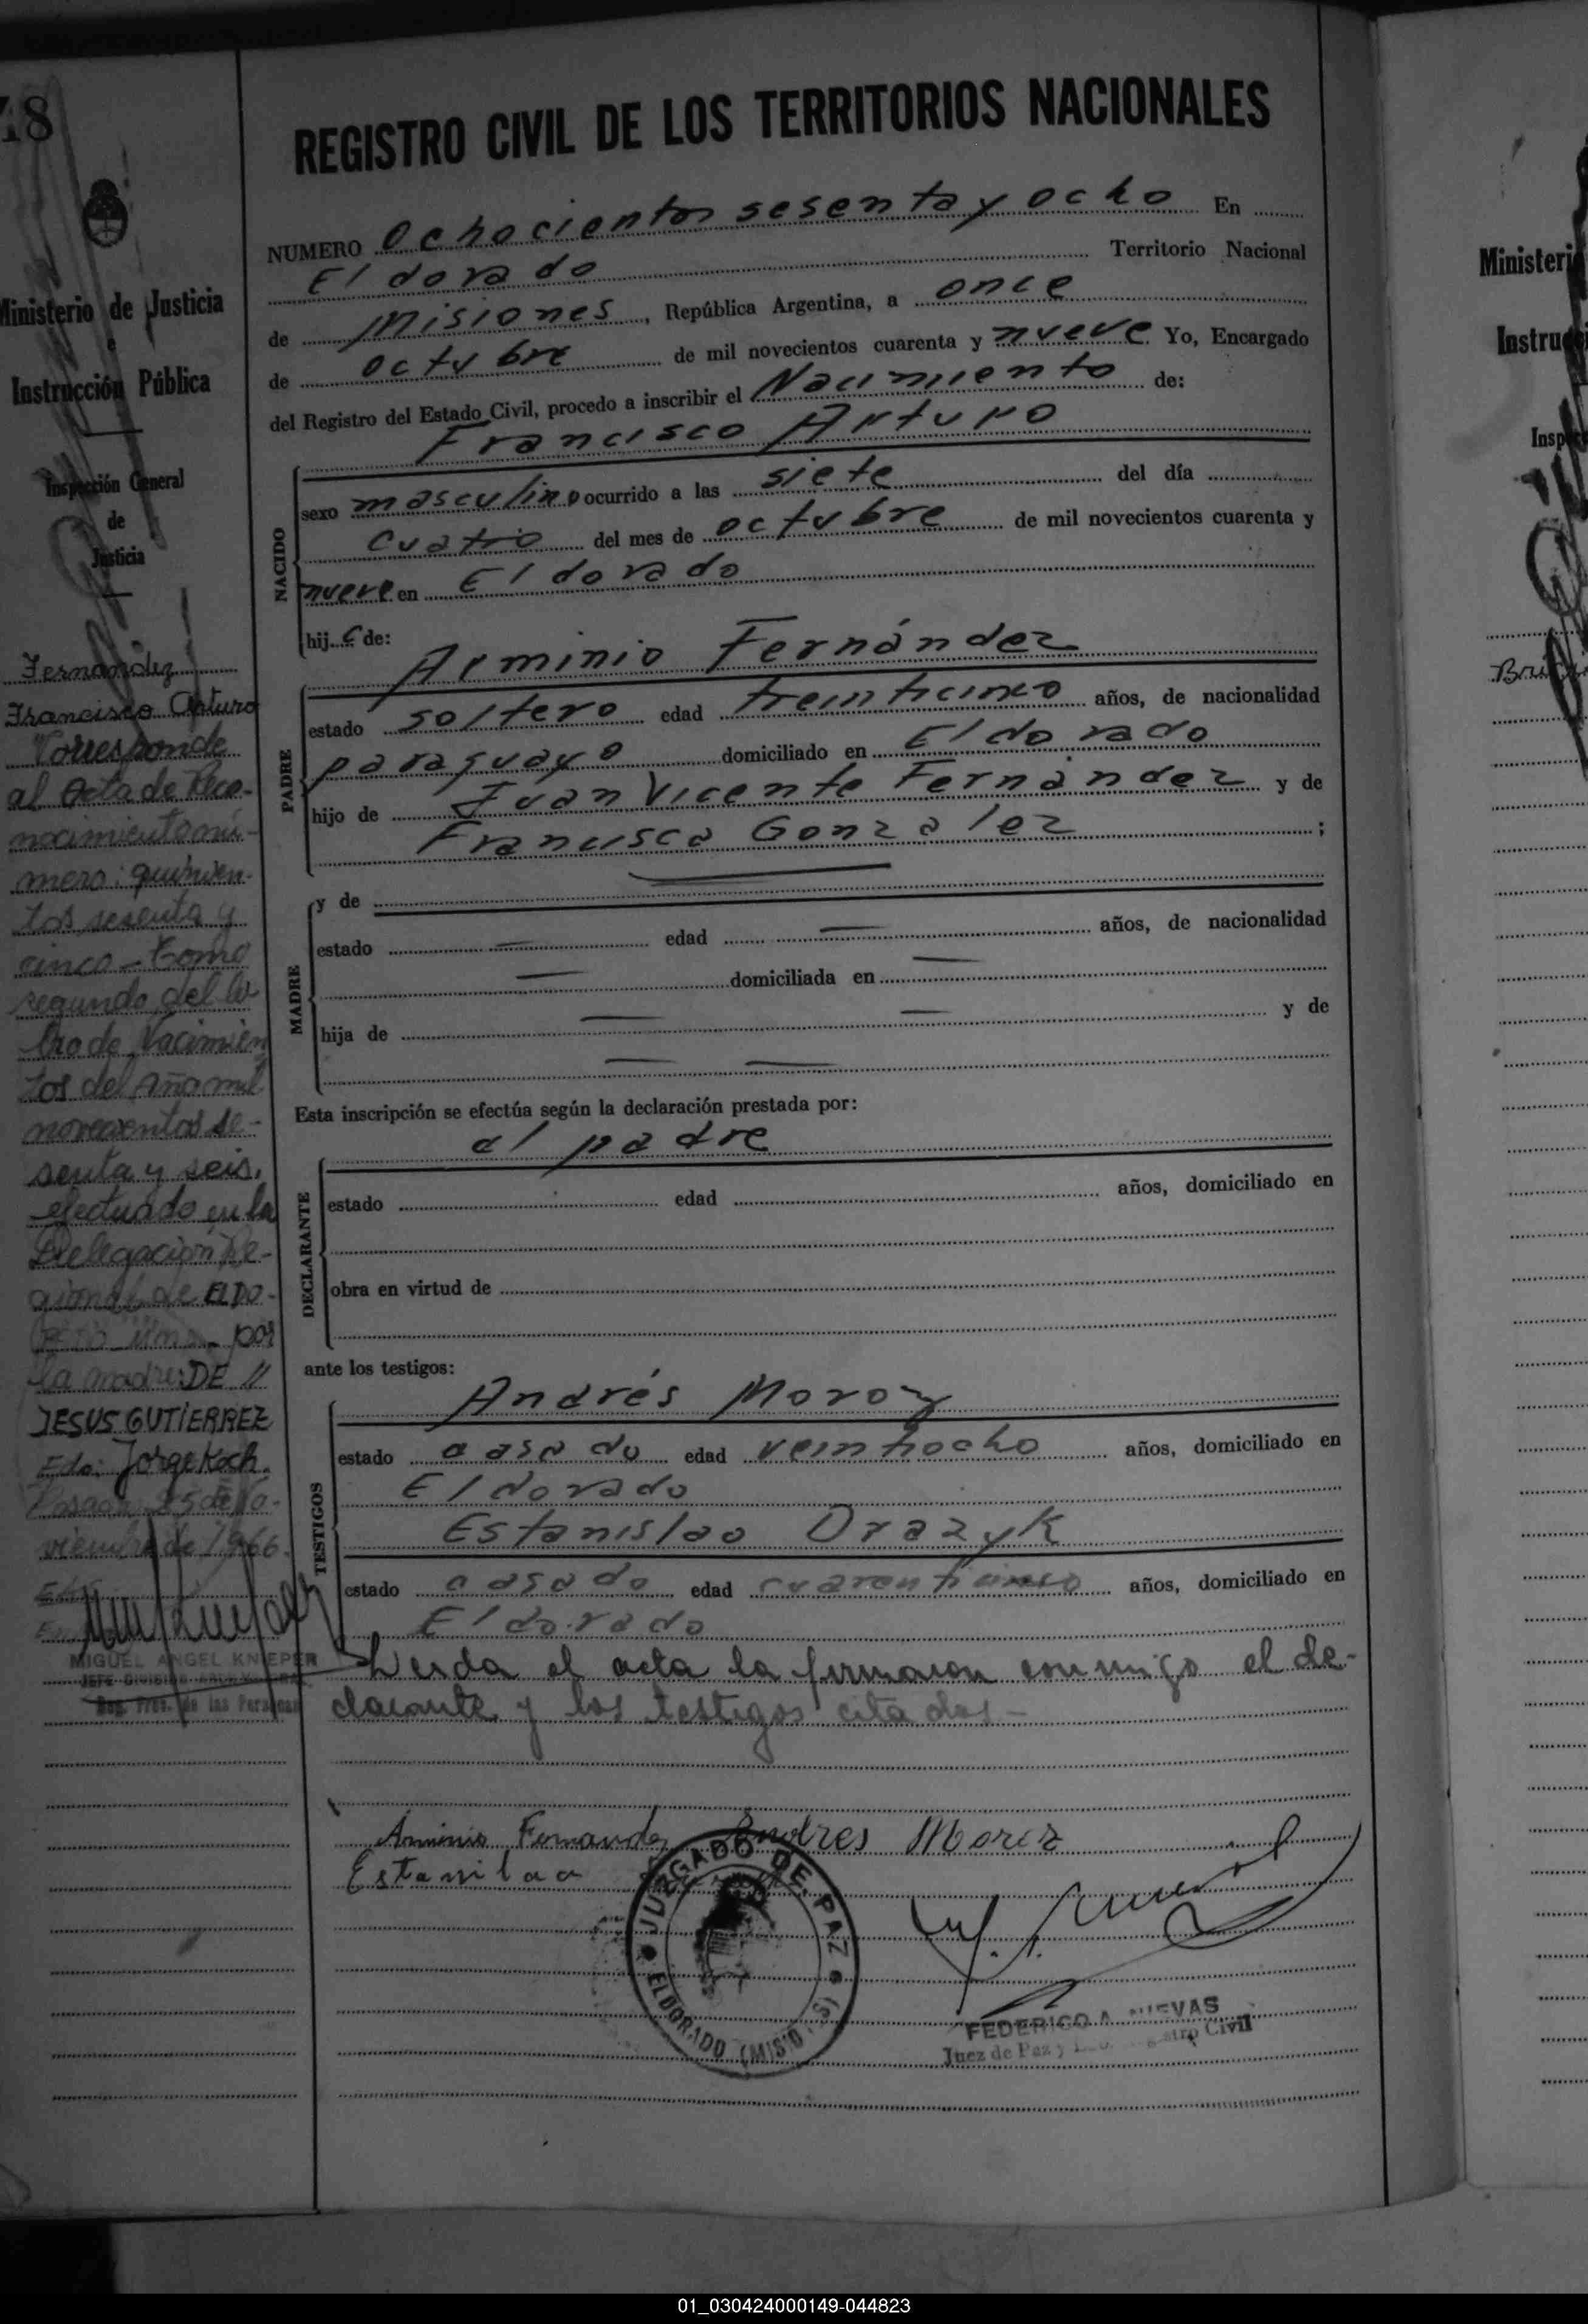 48
Ministerio de Justicia
e
Instrucción Pública
Inspección General
de
Justicia
Fernandez
Francisco Arturo
Corresponde
al Acta de Reco-
nocimiento nú-
mero: quinien-
tos sesenta y
cinco - Tomo
segundo del li-
bro de Nacimien
tos del Año mil
novecientos se-
senta y seis,
efectuado en la
Delegación Re-
gional de ELDO-
por
la madre: DE //
JESUS GUTIERREZ
Edo: Jorge Koch.
Posadas, 25 de No-
viembre de 1966.
MIGUEL ANGEL KNIEPER
JEFE DIVISION
Reg. Prov. de las Personas
REGISTRO CIVIL DE LOS TERRITORIOS NACIONALES
NUMERO Ochocientos sesenta y ocho En
Eldorado Territorio Nacional
de Misiones, República Argentina, a once
de octubre de mil novecientos cuarenta y nueve Yo, Encargado
del Registro del Estado Civil, procedo a inscribir el Nacimiento de:
Francisco Arturo
NACIDO
sexo masculino ocurrido a las siete del día
cuatro del mes de octubre de mil novecientos cuarenta y
nueve en Eldorado
hijo de:
Arminio Fernández
PADRE
estado soltero edad treinticinco años, de nacionalidad
paraguayo domiciliado en Eldorado
hijo de Juan Vicente Fernández y de
Francisca Gonzalez ;
MADRE
y de
estado edad años, de nacionalidad
domiciliada en
hija de y de
Esta inscripción se efectúa según la declaración prestada por:
el padre
DECLARANTE
estado edad años, domiciliado en
obra en virtud de
ante los testigos:
Andrés Moroz
TESTIGOS
estado casado edad veintiocho años, domiciliado en
Eldorado
Estanislao Drazyk
estado casado edad cuarenticinco años, domiciliado en
Eldorado
Leida el acta la firmaron conmigo el de-
clarante y los testigos citados -
Arminio Fernandez Andres Moroz
Estanilao
JUZGADO DE PAZ
ELDORADO (MISIO S)
FEDERICO A. NUEVAS
Juez de Paz y Civil
Ministeri
Instruc
Insp
01_030424000149-044823